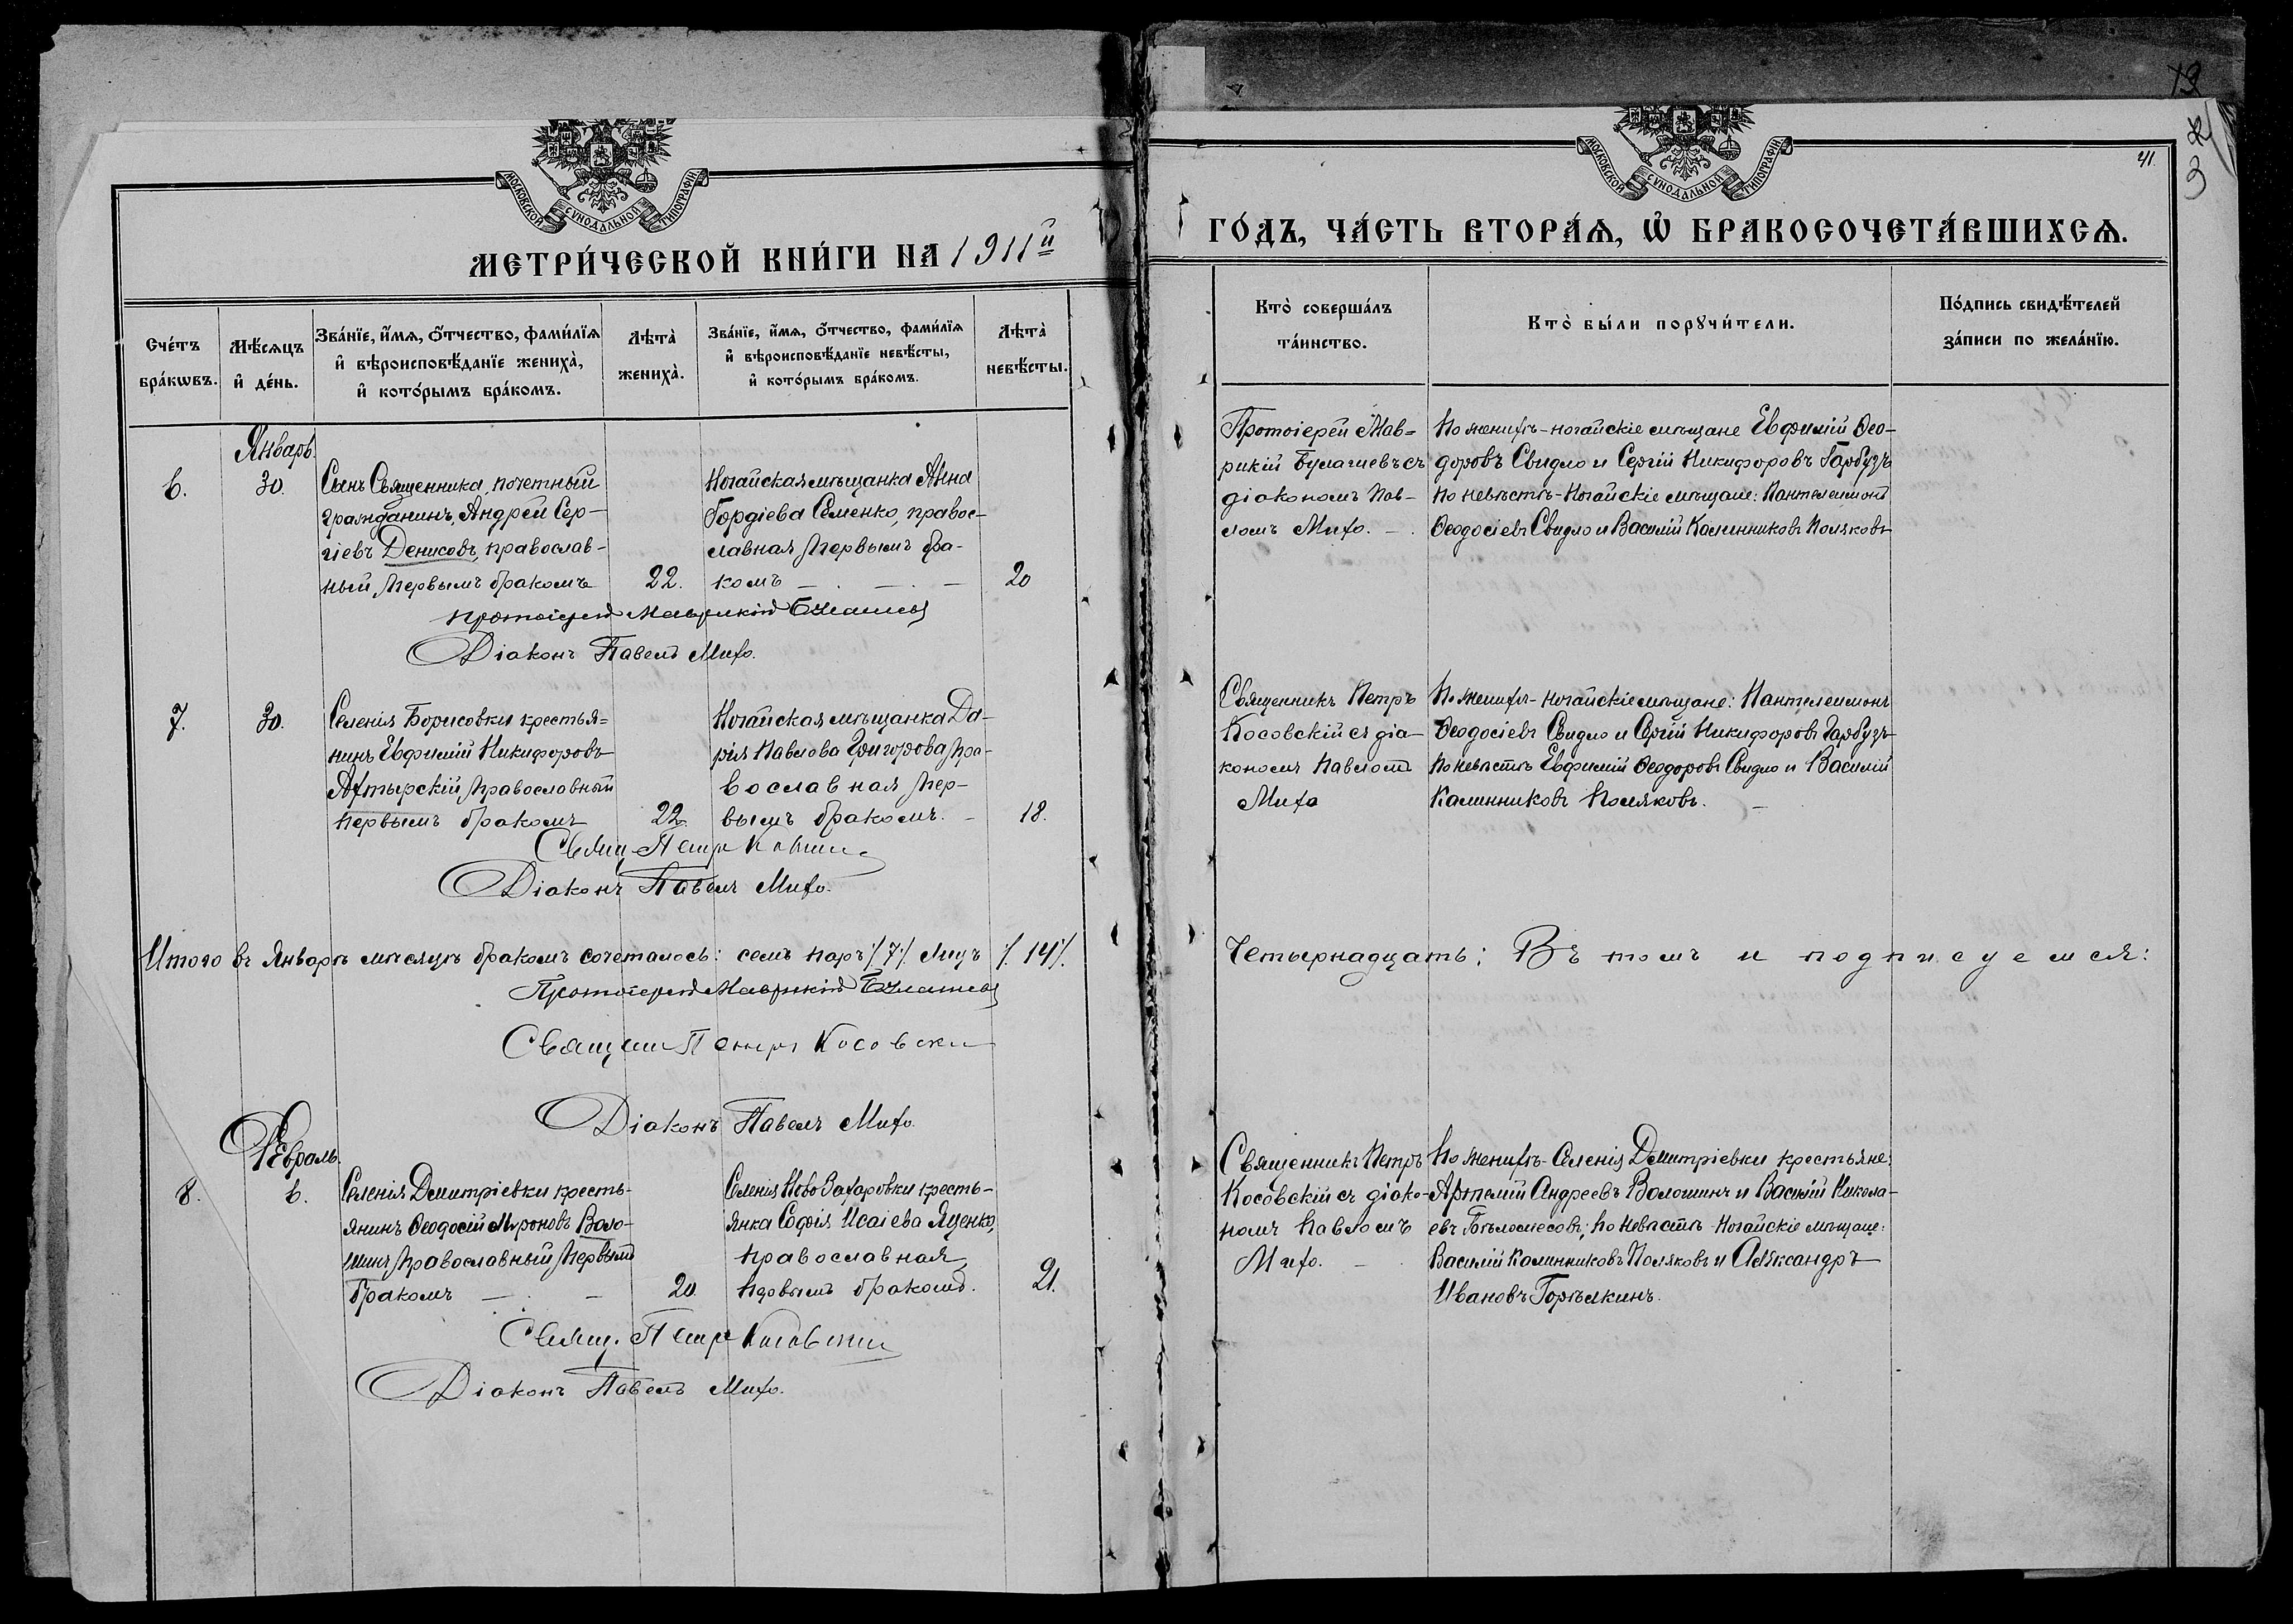 13
3
41.
МОСКОВСКОЙ СУНОДАЛЬНОЙ ТИПОГРАФІИ
МОСКОВСКОЙ СУНОДАЛЬНОЙ ТИПОГРАФІИ
МЕТРИ́ЧЕСКОЙ КНИ́ГИ НА 1911й
ГО́ДЪ, ЧА́СТЬ ВТОРА́Ѧ, Ѽ БРАКОСОЧЕТА́ВШИХСѦ.
Сче́тъ бра́кѡвъ.
Мѣ́сяцъ и҆ де́нь.
Зва́нїе, и҆́мѧ, ѻ҆́тчество, фами́лїѧ
и҆ вѣроисповѣ́данїе жениха̀,
и҆ кото́рымъ бра́комъ.
Лѣта̀ жениха̀.
Зва́нїе, и҆́мѧ, ѻ҆́тчество, фами́лїѧ
и҆ вѣроисповѣ́данїе невѣ́сты,
и҆ кото́рымъ бра́комъ.
Лѣта̀ невѣ́сты.
Кто̀ соверша́лъ
та́инство.
Кто̀ бы́ли порꙋчи́тели.
По́дпись свидѣ́телей
за́писи по жела́нїю.
Январь.
6.
30.
Сынъ Священника, почетный
гражданинъ, Андрей Сер-
гіевъ Денисовъ, православ-
ный, первымъ бракомъ
22.
Ногайская мѣщанка Анна
Гордіева Семенко, правос-
лавная, первымъ бра-
комъ
20
Протоіерей Мав=
рикій Булашевъ съ
діакономъ Пав-
ломъ Михо.
По женихѣ - ногайскіе мѣщане Евфимій Ѳео-
доровъ Свидло и Сергій Никифоровъ Гарбузъ
по невѣстѣ - Ногайскіе мѣщане: Пантелеимонъ
Ѳеодосіевъ Свидло и Василій Калинниковъ Поляковъ
Протоіерей Маврикій Булашевъ
Діаконъ Павелъ Михо.
7.
30.
Селенія Борисовки крестья=
нинъ Евфимій Никифоровъ
Ахтырскій, православный
первымъ бракомъ
22.
Ногайская мѣщанка Да-
рія Павлова Григорова, пра-
вославная, пер-
вымъ бракомъ.
18.
Священникъ Петръ
Косовскій съ діа-
кономъ Павломъ
Михо
По женихѣ - ногайскіе мѣщане: Пантелеимонъ
Ѳеодосіевъ Свидло и Сергій Никифоровъ Гарбузъ
по невѣстѣ Евфимій Ѳеодоровъ Свидло и Василій
Калинниковъ Поляковъ.
Свящ. Петръ Косовскій
Діаконъ Павелъ Михо.
Итого въ Январѣ мѣсяцѣ бракомъ сочеталось: семь паръ /7/ Лицъ /14/.
Четырнадцать; Въ томъ и подписуемся:
Протоіерей Маврикій Булашевъ
Священ. Петръ Косовскій
Діаконъ Павелъ Михо.
Февраль.
8.
6.
Селенія Димитріевки кресть-
янинъ Ѳеодосій Мѵроновъ Воло-
шинъ, православный, первымъ
бракомъ
20.
Селенія Ново Захаровки кресть-
янка Софія Исаіева Яценко,
православная,
первымъ бракомъ.
21.
Священникъ Петръ
Косовскій съ діако-
номъ Павломъ
Михо.
По женихѣ - Селенія Димитріевки крестьяне:
Артемій Андреевъ Волошинъ и Василій Никола-
евъ Голомесовъ; по невѣстѣ - Ногайскіе мѣщане:
Василій Калинниковъ Поляковъ и Александръ
Ивановъ Горѣлкинъ.
Свящ. Петръ Косовскій
Діаконъ Павелъ Михо.